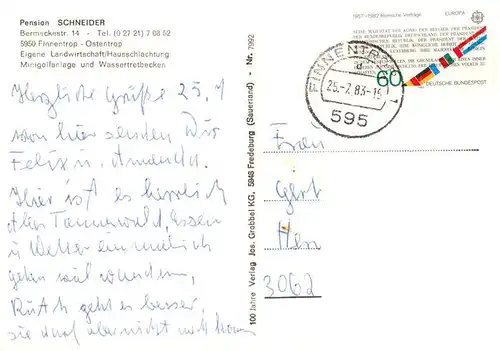 Pension SCHNEIDER
Bermickestr. 14 - Tel. (0 27 21) 7 08 52
5950 Finnentrop - Ostentrop
Eigene Landwirtschaft/Hausschlachtung
Minigolfanlage und Wassertretbecken
Herzliche Grüße 25.7
von hier senden Dir
Felix u. Amanda.
Hier ist es herrlich
Tannenwald, Essen
u Wetter einmalich
wandern,
Ruth geht es besser,
sie darf aber nicht mit
100 Jahre Verlag Jos. Grobbel KG, 5948 Fredeburg (Sauerland) - Nr. 7992
1957-1982 Römische Verträge
EUROPA
60
DEUTSCHE BUNDESPOST
FINNENTROP
25.-7.83-15
595
Frau
3062